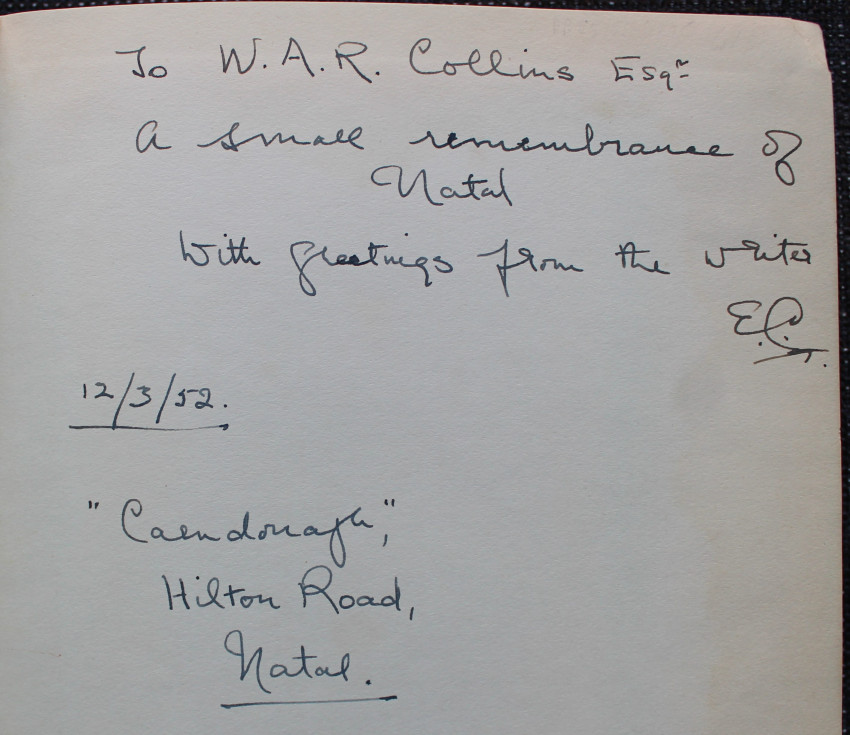 To W.A.R. Collins Esqr
A small remembrance of
Natal
With greetings from the writer
E.C.
12/3/52.
"Caendonagh",
Hilton Road,
Natal.